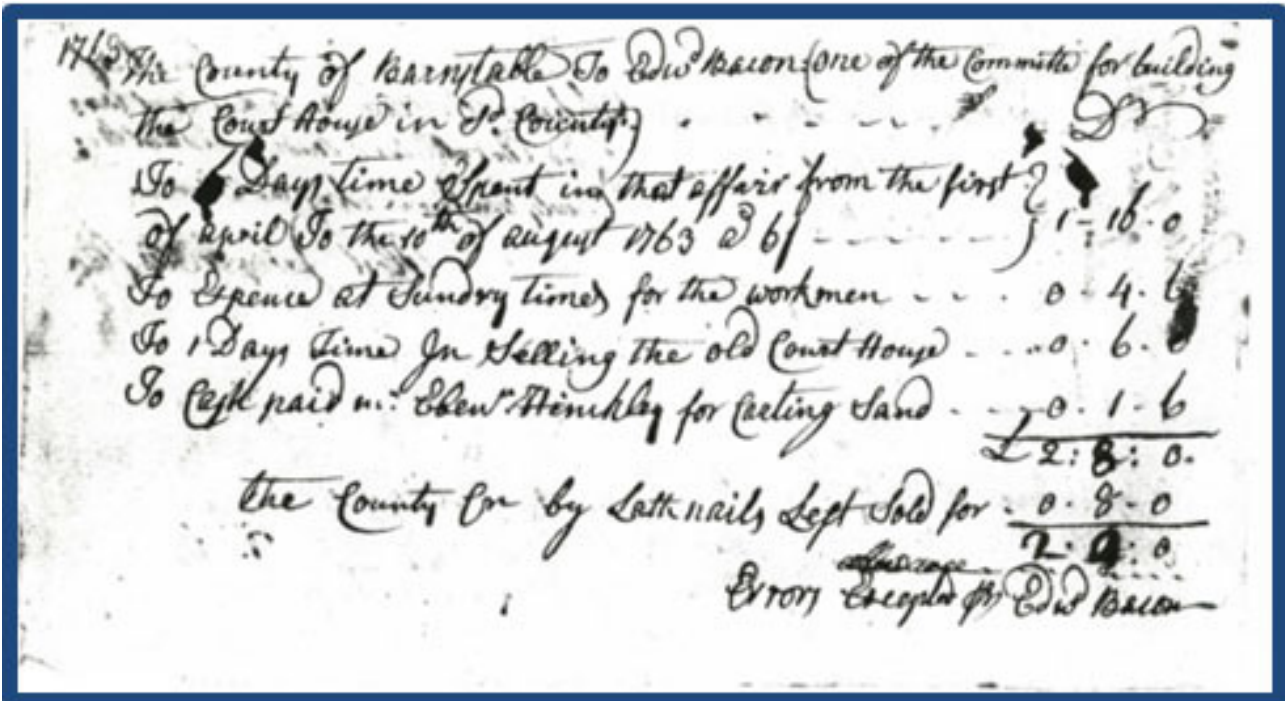 1763 The County of Barnstable To Edwd Bacon (one of the Committe for building
the Court House in Sd. County) - - - - - Dr
To 6 Days time Spent in that affair from the first
of april To the 10th of august 1763 a 6/ - - - - - } 1 - 16 - 0
To Expence at Sundry times for the workmen - - - 0 - 4 - 6
To 1 Days Time In Selling the old Court House - - - 0 - 6 - 0
To Cash paid mr. Ebenr Hinckley for Carting Sand - - - 0 - 1 - 6
£ 2 : 8 : 0.
the County Cr by Lath nails Left Sold for - 0 - 8 - 0
2 : 0 : 0
Errors Excepted pr Edwd Bacon